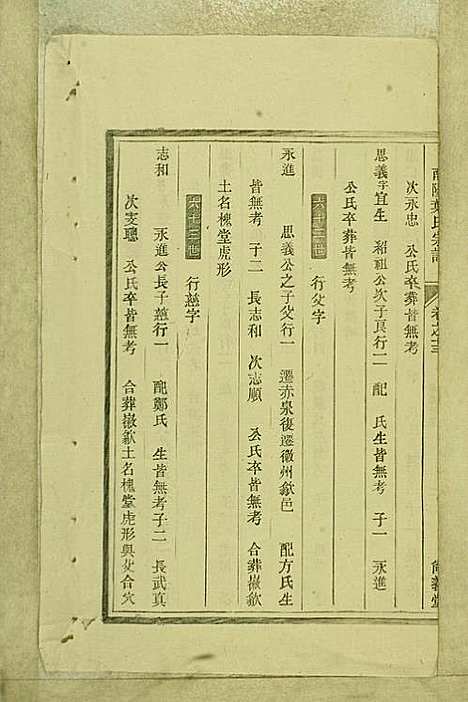 次永忠 公氏卒葬皆無考
思義字宜生 紹祖公次子良行二 配 氏生皆無考 子一 永進
公氏卒葬皆無考
行父字
永進 思義公之子父行一 遷赤泉復遷徽州歙邑 配方氏生
皆無考 子二 長志和 次志順 公氏卒皆無考 合葬徽歙
土名槐堂虎形
六十三世 行慈字
志和 永進公長子慈行一 配鄭氏 生皆無考子二 長武真
次支聰 公氏卒皆無考 合葬徽歙土名槐堂虎形與父合穴